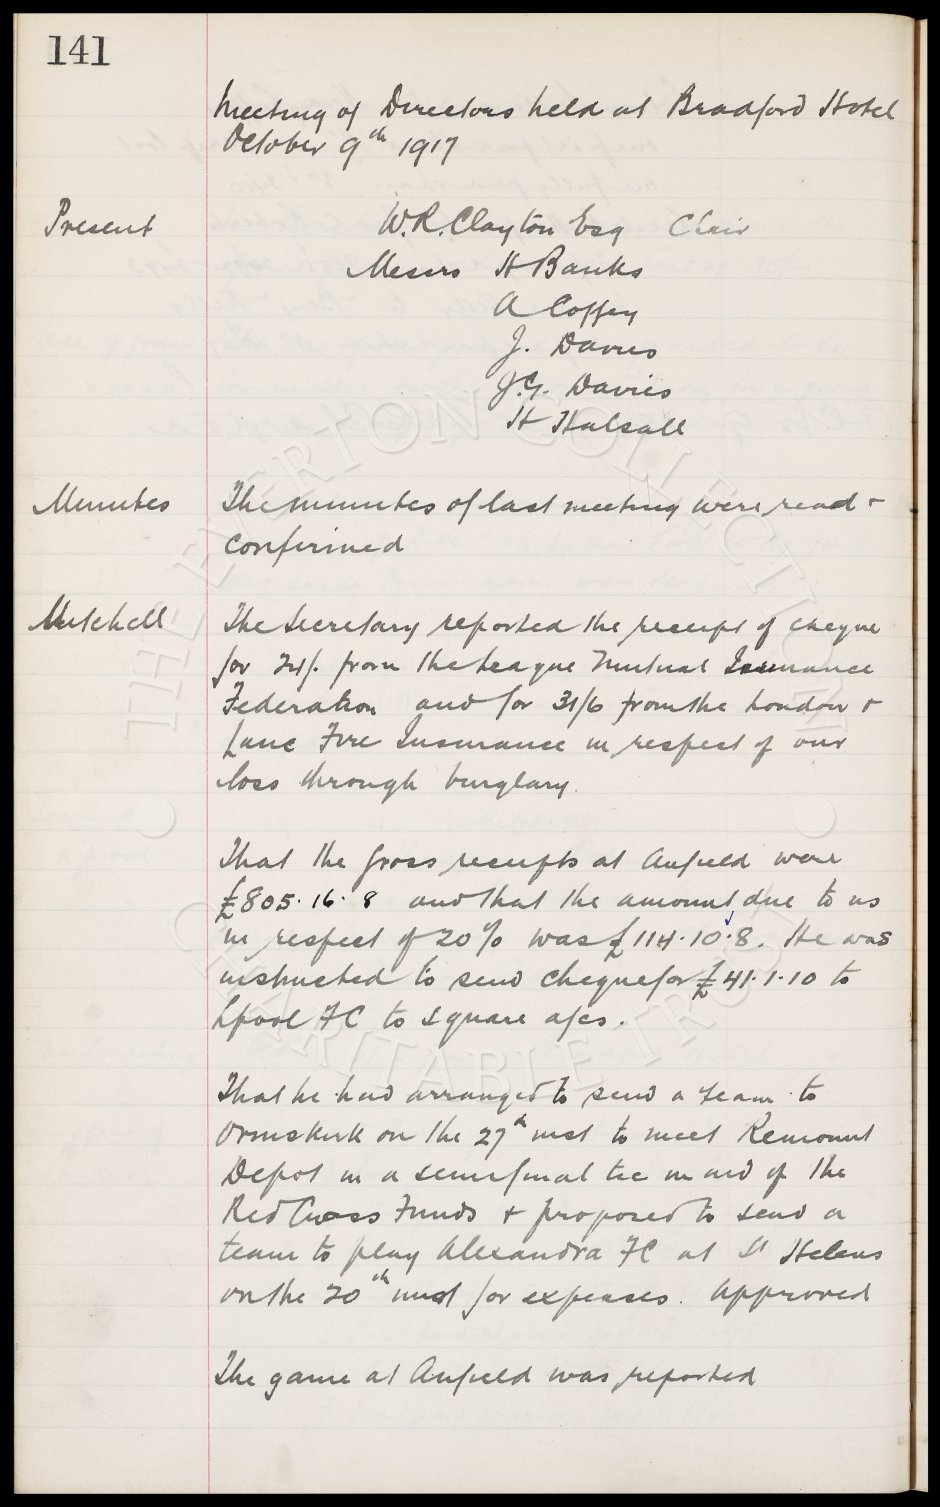 141
Meeting of Directors held at Bradford Hotel
October 9th 1917
Present
W.R. Clayton Esq Chair
Messrs H Banks
A Coffey
J. Davies
J.G. Davies
H Halsall
Minutes
The minutes of last meeting were read +
confirmed
Mitchell
The Secretary reported the receipt of cheque
for 24/. from the League Mutual Insurance
Federation and for 31/6 from the London +
Lanc Fire Insurance in respect of our
loss through burglary.
That the gross receipts at Anfield were
£805.16.8 and that the amount due to us
in respect of 20% was £114.10.8. He was
instructed to send cheque for £41.1.10 to
Lpool FC to square a/cs.
That he had arranged to send a team to
Ormskirk on the 27th inst to meet Remount
Depot in a semifinal tie in aid of the
Red Cross Funds + proposed to send a
team to play Alexandra FC at St Helens
on the 20th inst for expenses. Approved
The game at Anfield was reported
THE EVERTON COLLECTION
CHARITABLE TRUST